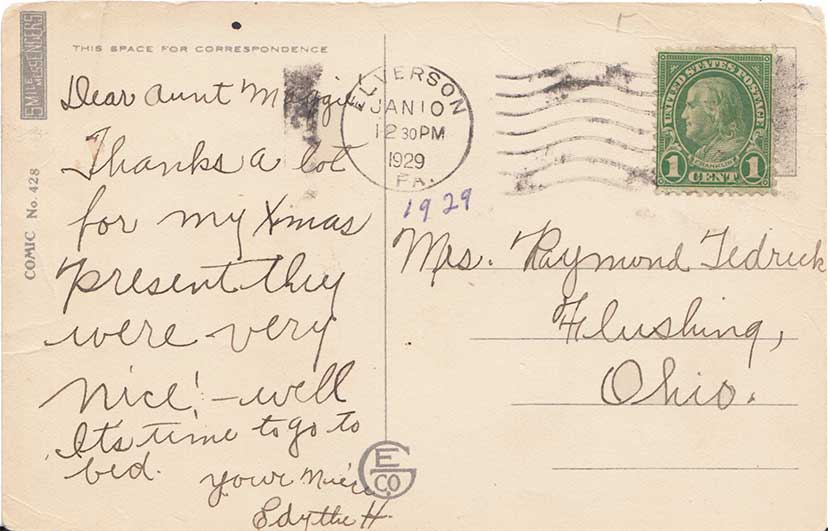 SMILE MESSENGERS
COMIC No. 428
THIS SPACE FOR CORRESPONDENCE
Dear Aunt Maggie
Thanks a lot
for my Xmas
present they
were very
nice! - well
It's time to go to
bed.
your Niece
Edythe H.
ELVERSON
JAN 10
12 30 PM
1929
PA.
1929
UNITED STATES POSTAGE
FRANKLIN
1 CENT 1
Mrs. Raymond Tedrick
Flushing,
Ohio.
E
CO